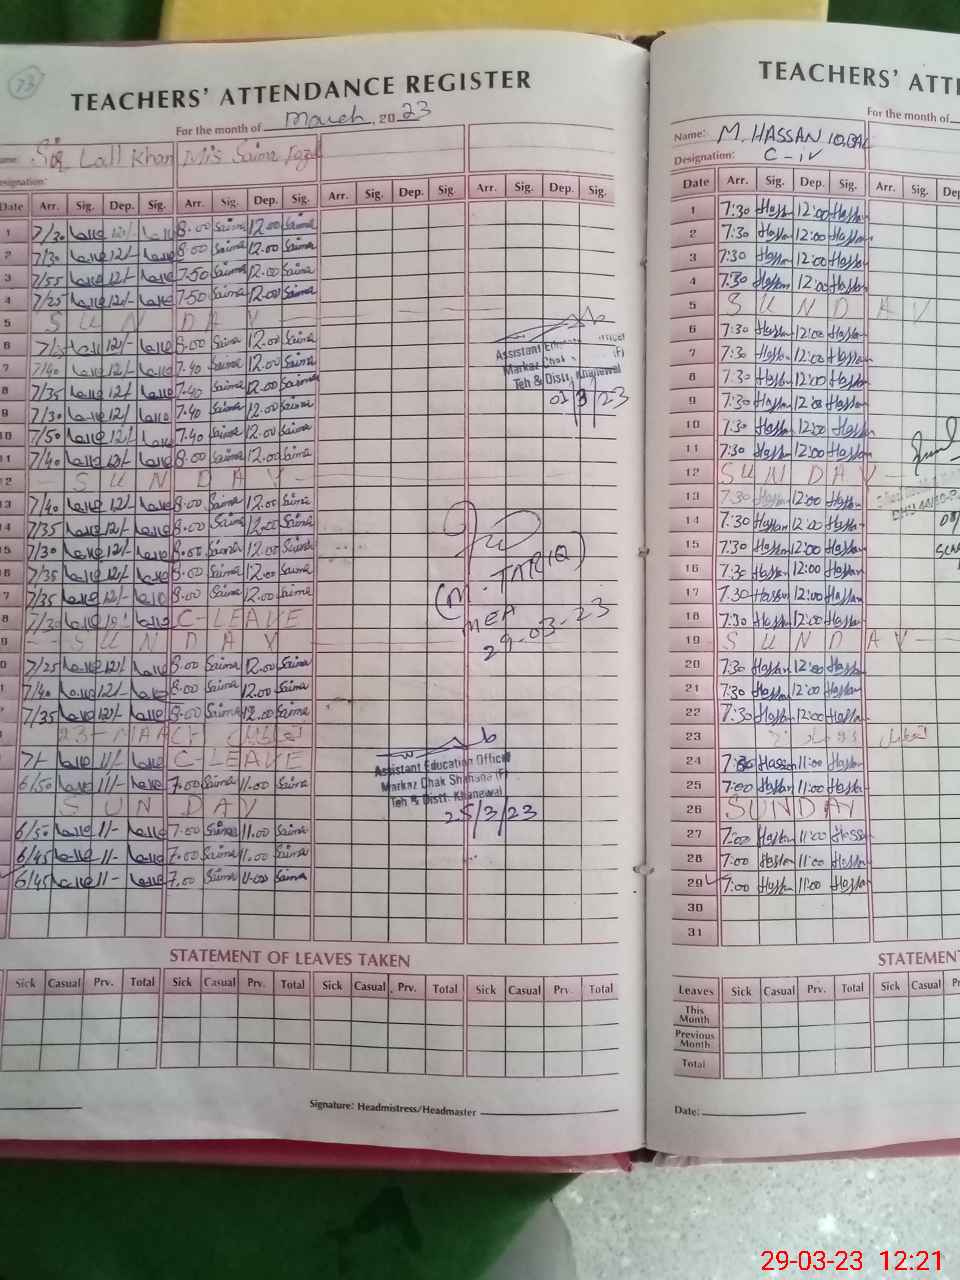 73
TEACHERS' ATTENDANCE REGISTER
For the month of March, 2023
Name: Sir Lall Khan Mis Saima
Designation:
Date Arr. Sig. Dep. Sig. Arr. Sig. Dep. Sig. Arr. Sig. Dep. Sig. Arr. Sig. Dep. Sig.
1 7/30 12/- 8.00 Saima 12.00 Saima
2 7/30 12/- 8.00 Saima 12.00 Saima
3 7/55 12/- 7.50 Saima 12.00 Saima
4 7/25 12/- 7.50 Saima 12.00 Saima
5 SUNDAY
6 12/- 8.00 Saima 12.00 Saima
7 7/40 12/- 7.40 Saima 12.00 Saima
8 7/35 12/- 7.40 Saima 12.00 Saima
9 7/30 12/- 7.40 Saima 12.00 Saima
10 7/50 12/- 7.40 Saima 12.00 Saima
11 7/40 12/- 8.00 Saima 12.00 Saima
12 SUNDAY
13 7/40 12/- 8.00 Saima 12.00 Saima
14 7/35 12/- 8.00 Saima 12.00 Saima
15 7/30 12/- 8.00 Saima 12.00 Saima
16 7/35 12/- 8.00 Saima 12.00 Saima
17 7/35 12/- 8.00 Saima 12.00 Saima
8 7/30 C-LEAVE
9 SUNDAY
0 7/25 12/- 8.00 Saima 12.00 Saima
7/40 12/- 8.00 Saima 12.00 Saima
7/35 12/- 8.00 Saima 12.00 Saima
23-MARCH تعطیل
7/- 11/- C-LEAVE
6/50 11/- 7.00 Saima 11.00 Saima
SUNDAY
6/50 11/- 7.00 Saima 11.00 Saima
6/45 11/- 7.00 Saima 11.00 Saima
6/45 11/- 7.00 Saima 11.00 Saima
Assistant Education Officer
Markaz Chak (F)
Teh & Distt. Khanewal
01/3/23
(M. TARIQ)
MEA
29-03-23
Assistant Education Officer
Markaz Chak Shahana (F)
Teh & Distt. Khanewal
25/3/23
STATEMENT OF LEAVES TAKEN
Sick Casual Prv. Total Sick Casual Prv. Total Sick Casual Prv. Total Sick Casual Prv. Total
Signature: Headmistress/Headmaster
TEACHERS' ATTE
For the month of
Name: M. HASSAN IQBAL
Designation: C-iv
Date Arr. Sig. Dep. Sig. Arr. Sig. Dep
1 7:30 Hassan 12:00 Hassan
2 7:30 Hassan 12:00 Hassan
3 7:30 Hassan 12:00 Hassan
4 7:30 Hassan 12:00 Hassan
5 SUNDAY
6 7:30 Hassan 12:00 Hassan
7 7:30 Hassan 12:00 Hassan
8 7:30 Hassan 12:00 Hassan
9 7:30 Hassan 12:00 Hassan
10 7:30 Hassan 12:00 Hassan
11 7:30 Hassan 12:00 Hassan
12 SUNDAY
13 7:30 Hassan 12:00 Hassan
14 7:30 Hassan 12:00 Hassan
15 7:30 Hassan 12:00 Hassan
16 7:30 Hassan 12:00 Hassan
17 7:30 Hassan 12:00 Hassan
18 7:30 Hassan 12:00 Hassan
19 SUNDAY
20 7:30 Hassan 12:00 Hassan
21 7:30 Hassan 12:00 Hassan
22 7:30 Hassan 12:00 Hassan
23 تعطیل
24 7:30 Hassan 11:00 Hassan
25 7:00 Hassan 11:00 Hassan
26 SUNDAY
27 7:00 Hassan 11:00 Hassan
28 7:00 Hassan 11:00 Hassan
29 7:00 Hassan 11:00 Hassan
30
31
STATEMENT
Leaves Sick Casual Prv. Total Sick Casual
This Month
Previous Month
Total
Date:
29-03-23 12:21